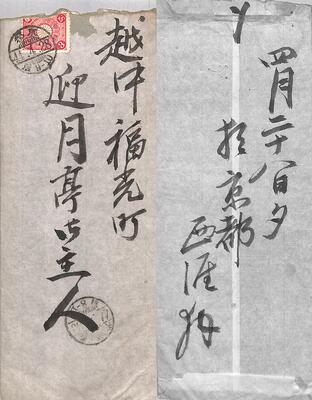 越中福光町
迎月亭御主人
四月二十八日夕
於京都
西涯拝